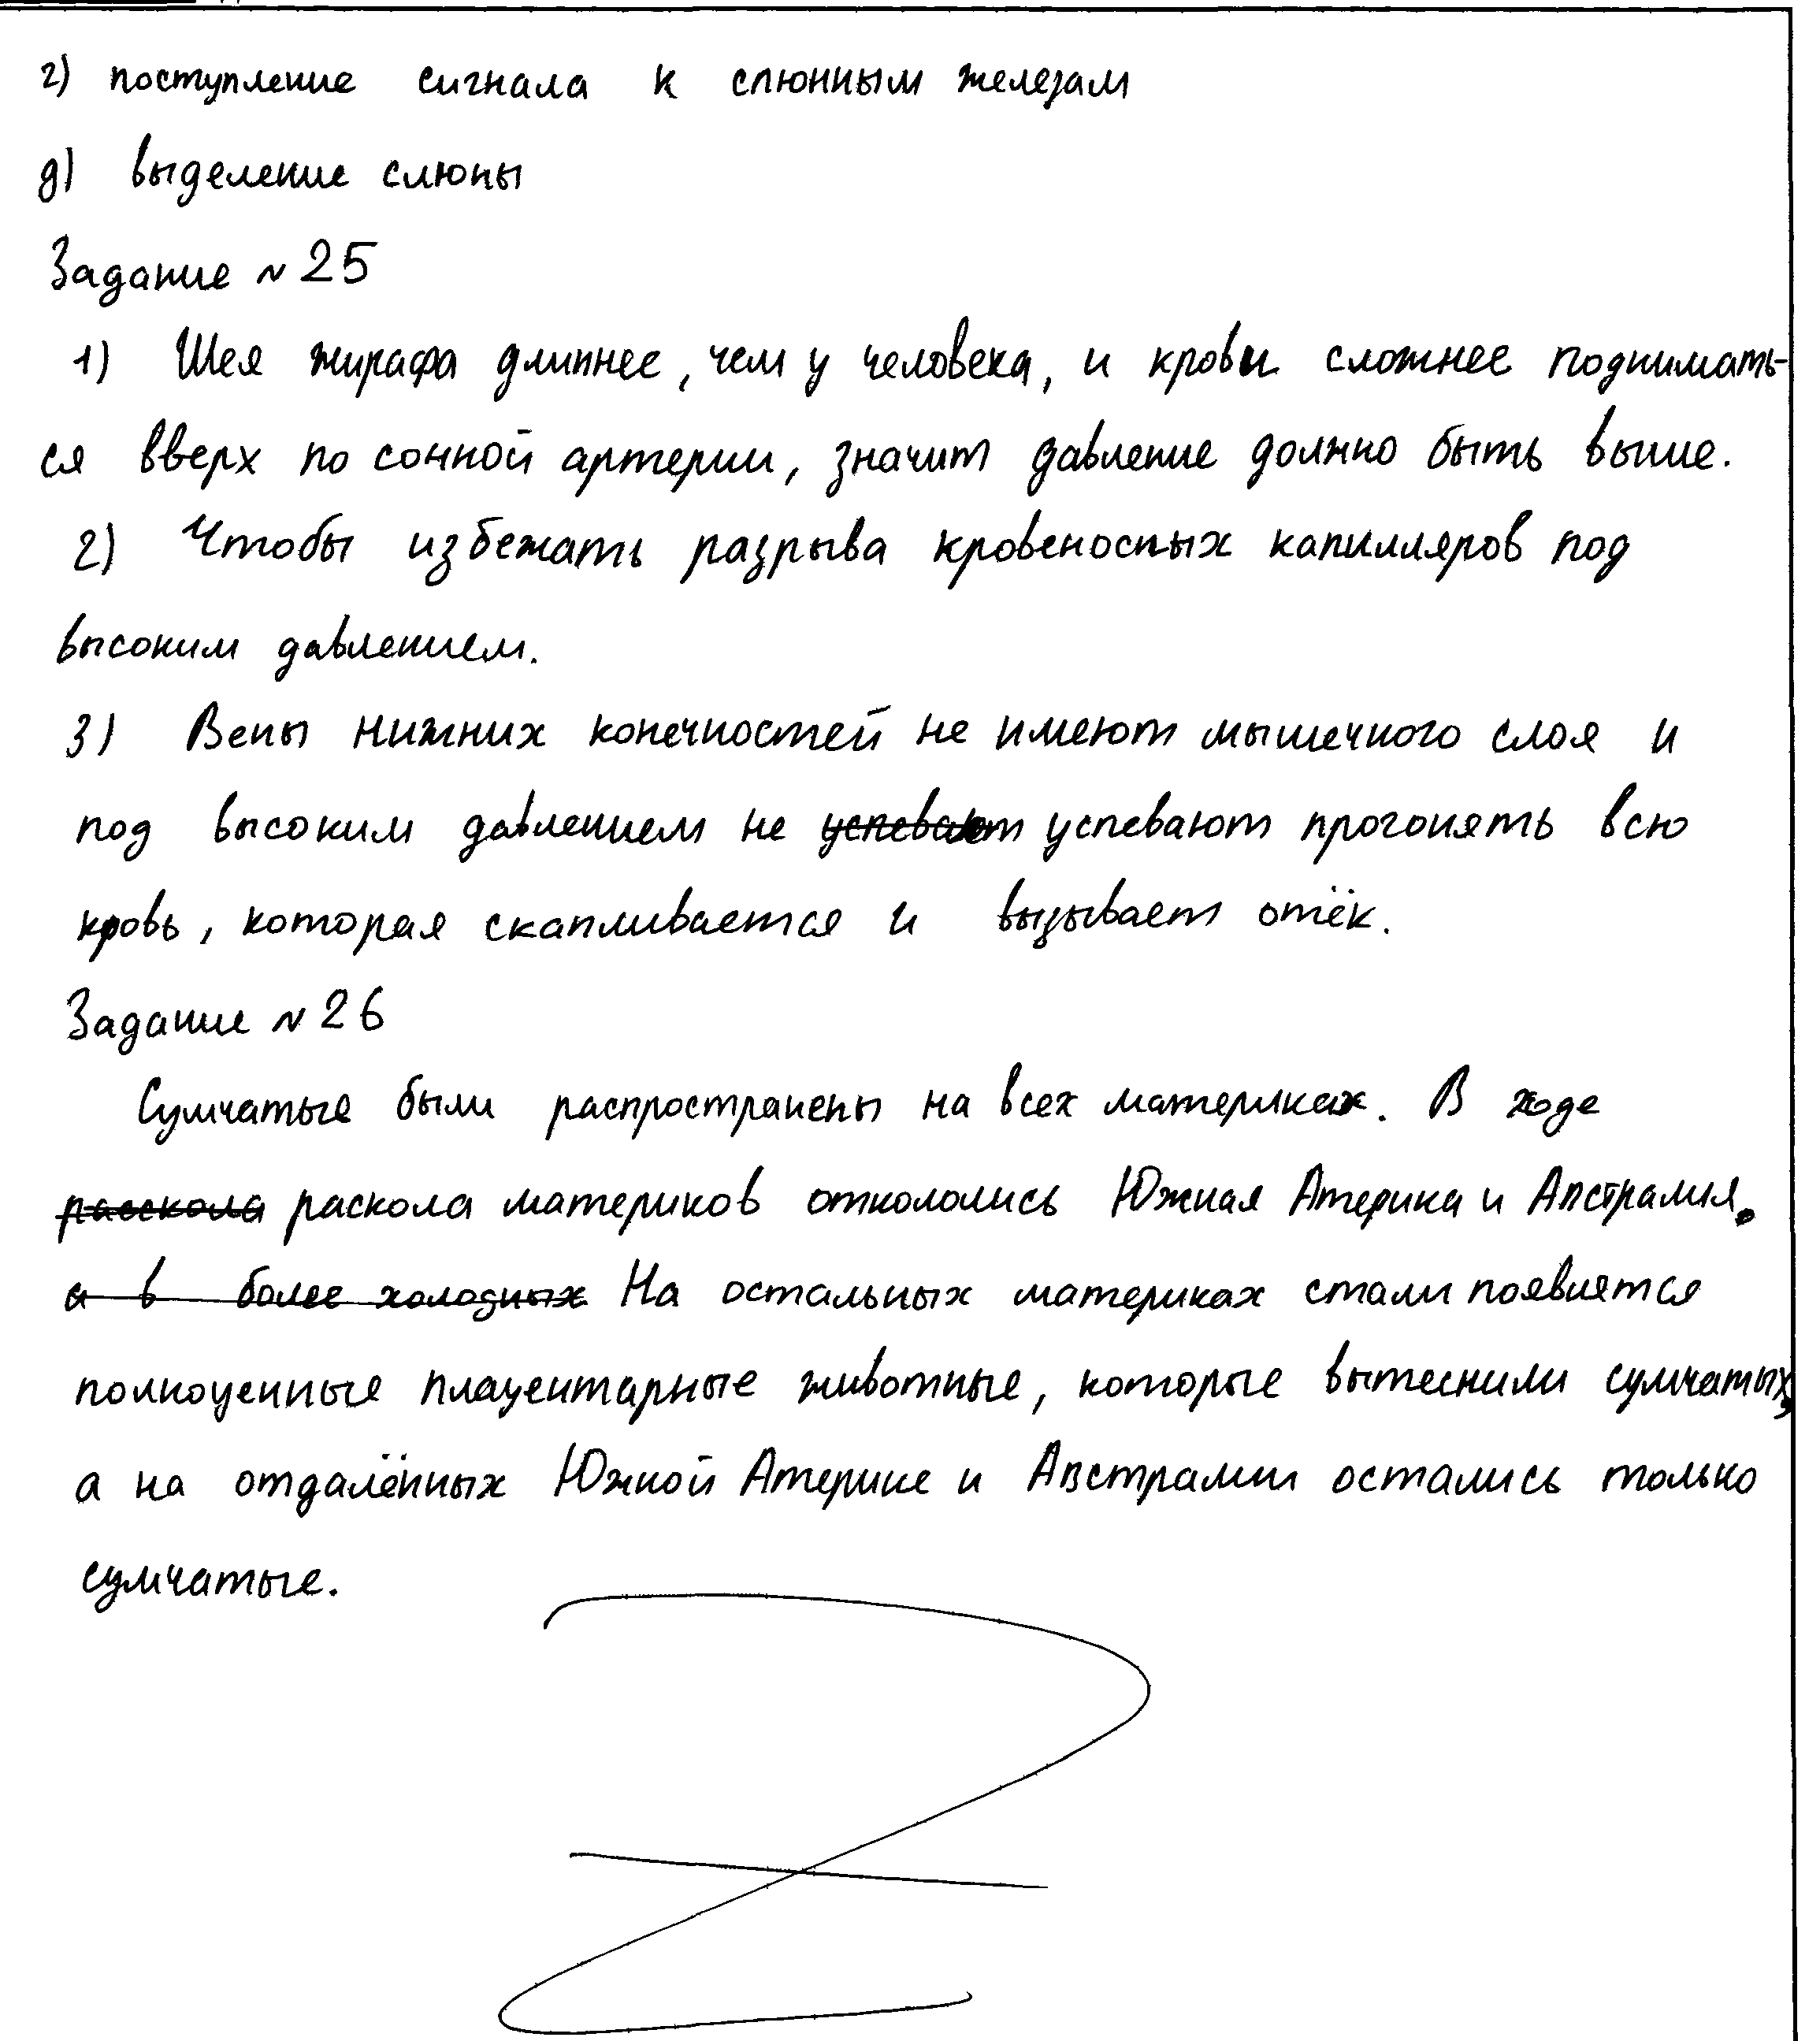 г) поступление сигнала к слюнным железам
д) выделение слюны
Задание №25
1) Шея жирафа длиннее, чем у человека, и крови сложнее поднимать-
ся вверх по сонной артерии, значит давление должно быть выше.
2) Чтобы избежать разрыва кровеносных капилляров под
высоким давлением.
3) Вены нижних конечностей не имеют мышечного слоя и
под высоким давлением не успевают успевают прогонять всю
кровь, которая скапливается и вызывает отёк.
Задание №26
Сумчатые были распространены на всех материках. В ходе
расскола раскола материков откололись Южная Америка и Австралия.
а в более холодных На остальных материках стали появлятся
полноценные плацентарные животные, которые вытеснили сумчатых,
а на отдалённых Южной Америке и Австралии остались только
сумчатые.